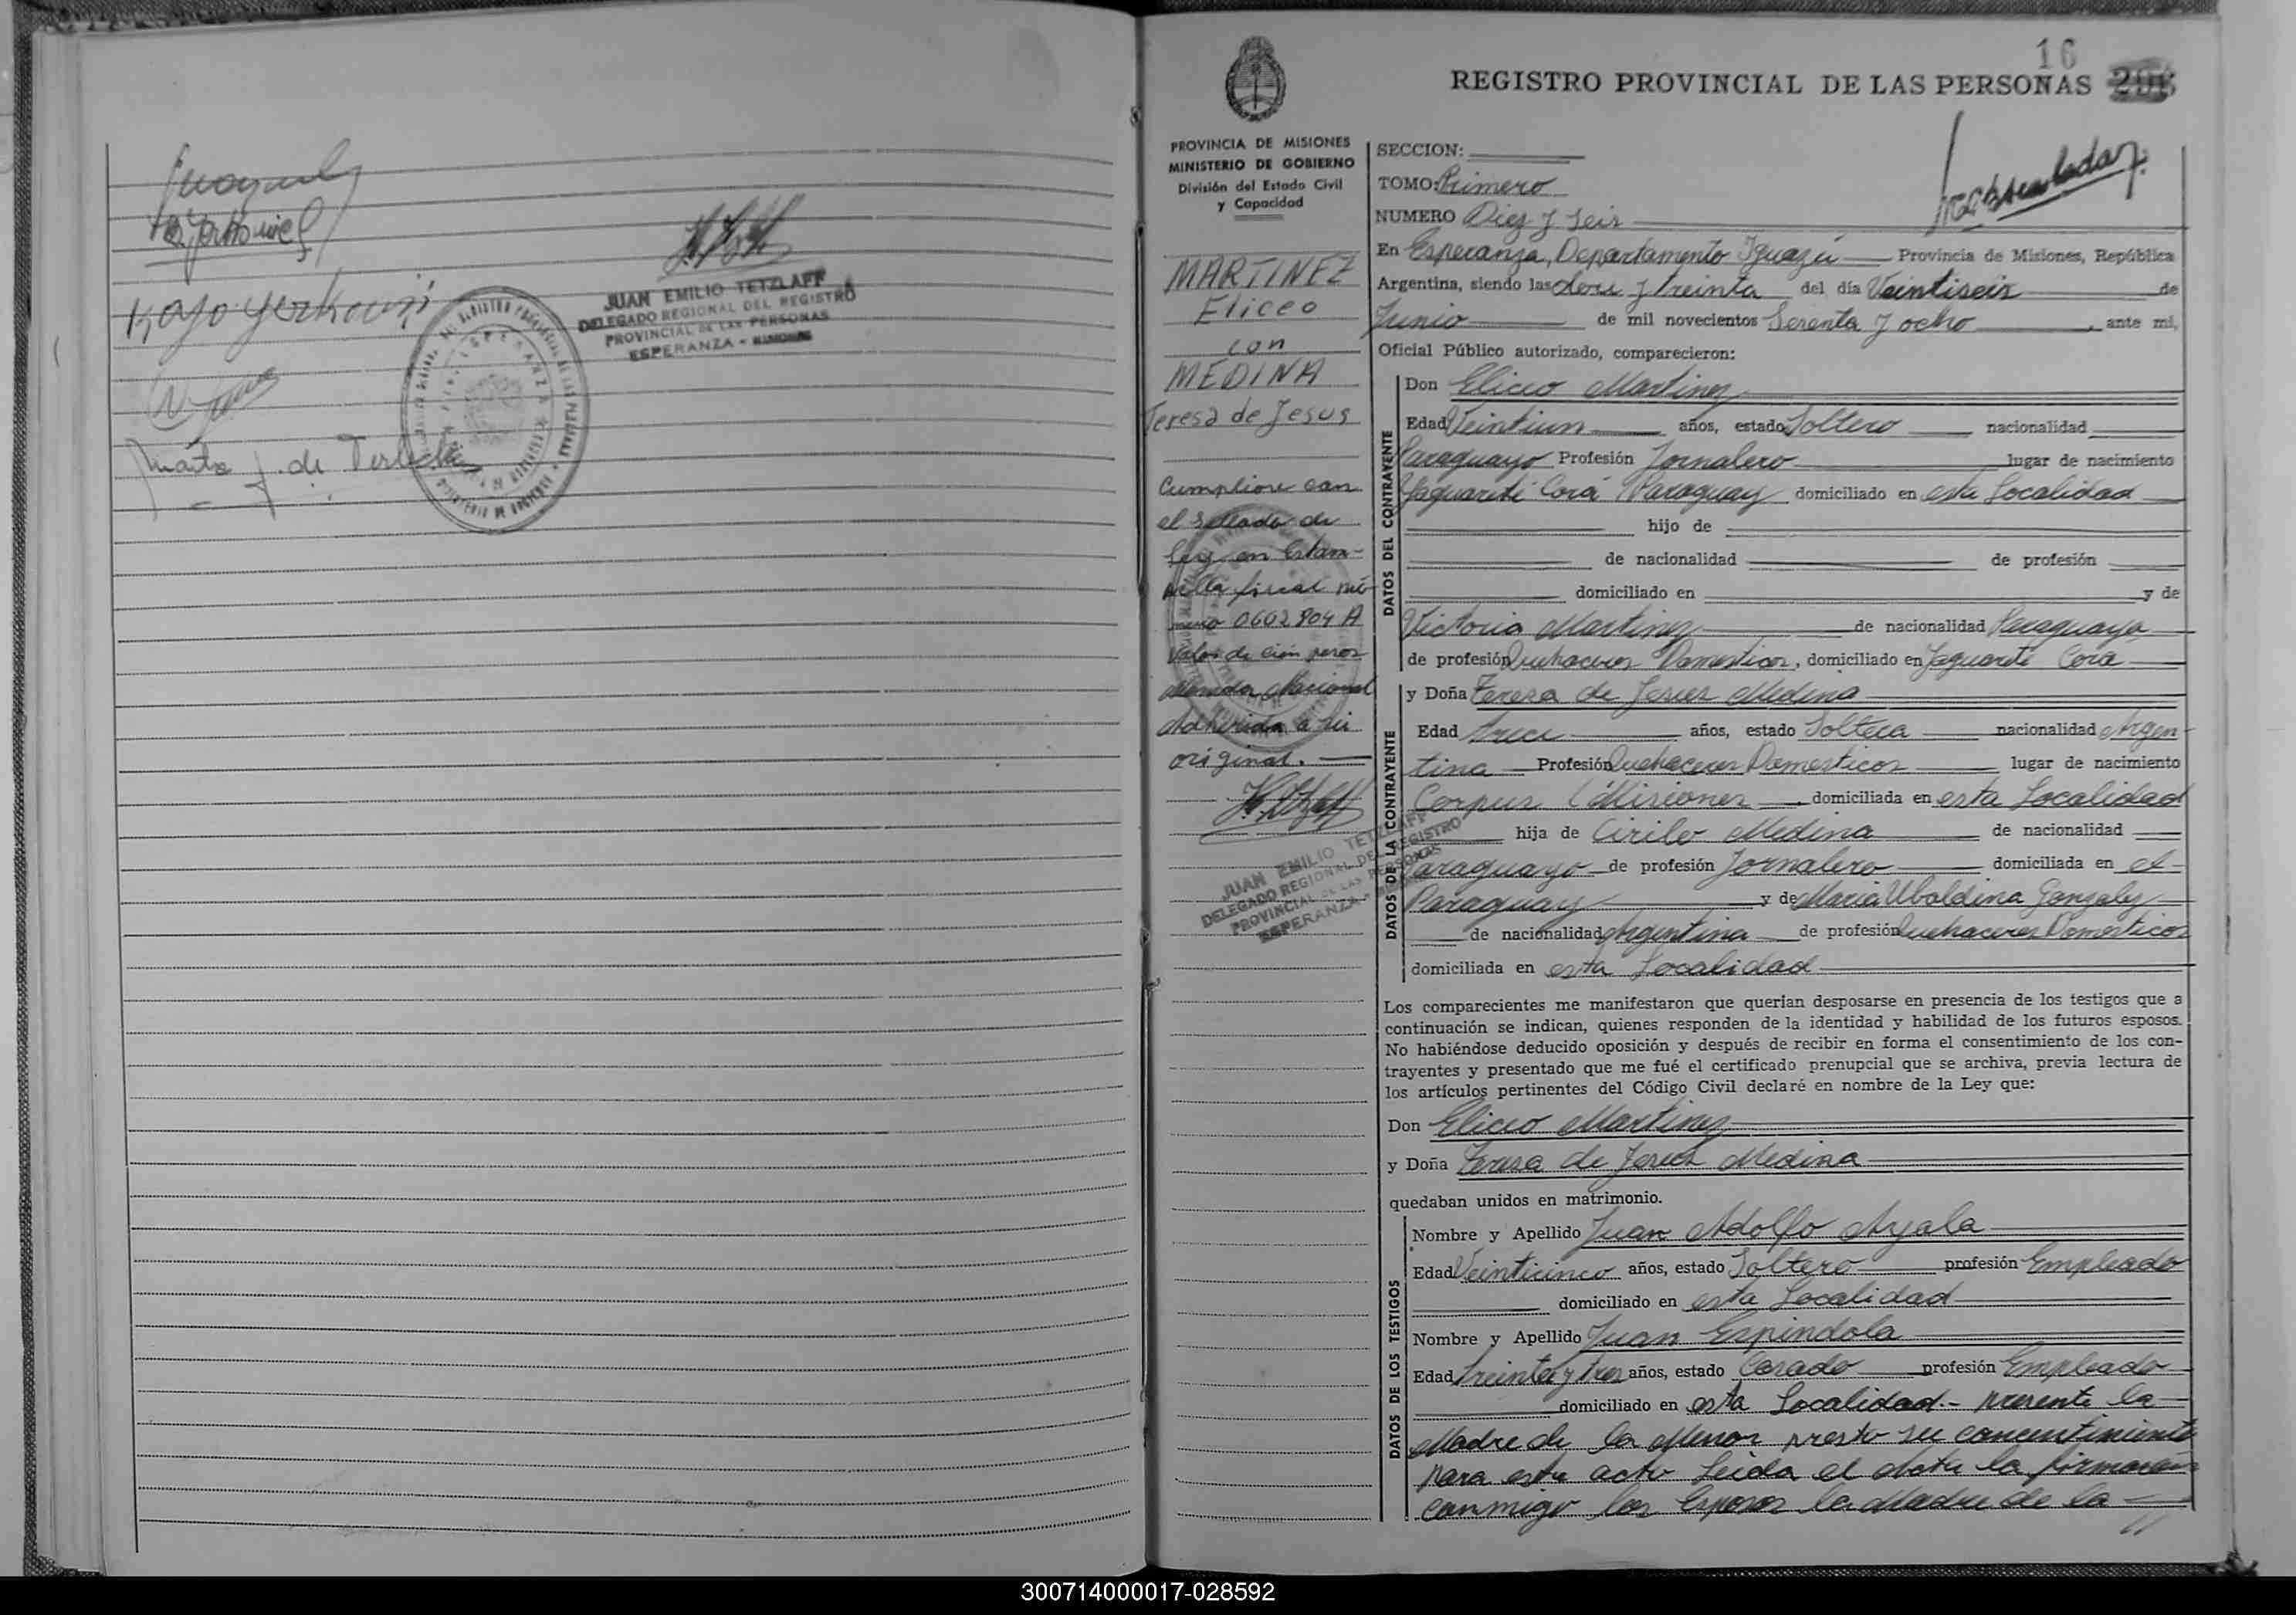 Kayo Yerkovich
JUAN EMILIO TETZLAFF
DELEGADO REGIONAL DEL REGISTRO
PROVINCIAL DE LAS PERSONAS
ESPERANZA - MISIONES
16
REGISTRO PROVINCIAL DE LAS PERSONAS
PROVINCIA DE MISIONES
MINISTERIO DE GOBIERNO
División del Estado Civil
y Capacidad
MARTINEZ
Eliceo
con
MEDINA
Teresa de Jesus
Cumpliose con
el sellado de
ley en Estam-
pilla fiscal nú-
mero 0602804 A
Valor de cien pesos
Moneda Nacional
Adherida a su
original.
JUAN EMILIO TETZLAFF
DELEGADO REGIONAL DEL REGISTRO
PROVINCIAL DE LAS PERSONAS
ESPERANZA - MISIONES
SECCION:
TOMO: Primero
NUMERO Diez y seis
En Esperanza, Departamento Iguazú Provincia de Misiones, República
Argentina, siendo las doce y treinta del día Veintiseis de
Junio de mil novecientos Sesenta y ocho, ante mi,
Oficial Público autorizado, comparecieron:
DATOS DEL CONTRAYENTE
Don Eliceo Martinez
Edad Veintiun años, estado Soltero nacionalidad
Paraguayo Profesión Jornalero lugar de nacimiento
Yaguareté Corá Paraguay domiciliado en esta Localidad
hijo de
de nacionalidad de profesión
domiciliado en y de
Victoria Martinez de nacionalidad Paraguaya
de profesión Quehaceres Domesticos, domiciliado en Yaguareté Cora
DATOS DE LA CONTRAYENTE
y Doña Teresa de Jesus Medina
Edad Trece años, estado Soltera nacionalidad Argen-
tina Profesión Quehaceres Domesticos lugar de nacimiento
Corpus Misiones, domiciliada en esta Localidad
hija de Cirilo Medina de nacionalidad
Paraguayo de profesión Jornalero domiciliada en el
Paraguay y de Maria Ubaldina Gonzalez
de nacionalidad Argentina de profesión Quehaceres Domesticos
domiciliada en esta Localidad
Los comparecientes me manifestaron que querían desposarse en presencia de los testigos que a
continuación se indican, quienes responden de la identidad y habilidad de los futuros esposos.
No habiéndose deducido oposición y después de recibir en forma el consentimiento de los con-
trayentes y presentado que me fué el certificado prenupcial que se archiva, previa lectura de
los artículos pertinentes del Código Civil declaré en nombre de la Ley que:
Don Eliceo Martinez
y Doña Teresa de Jesus Medina
quedaban unidos en matrimonio.
DATOS DE LOS TESTIGOS
Nombre y Apellido Juan Adolfo Ayala
Edad Veinticinco años, estado Soltero profesión Empleado
domiciliado en esta Localidad
Nombre y Apellido Juan Espindola
Edad treinta y tres años, estado Casado profesión Empleado
domiciliado en esta Localidad.- presente la
Madre de la Menor presto su concentimiento
para este acto Leida el Acta la firmaron
conmigo los Esposos la Madre de la
300714000017-028592